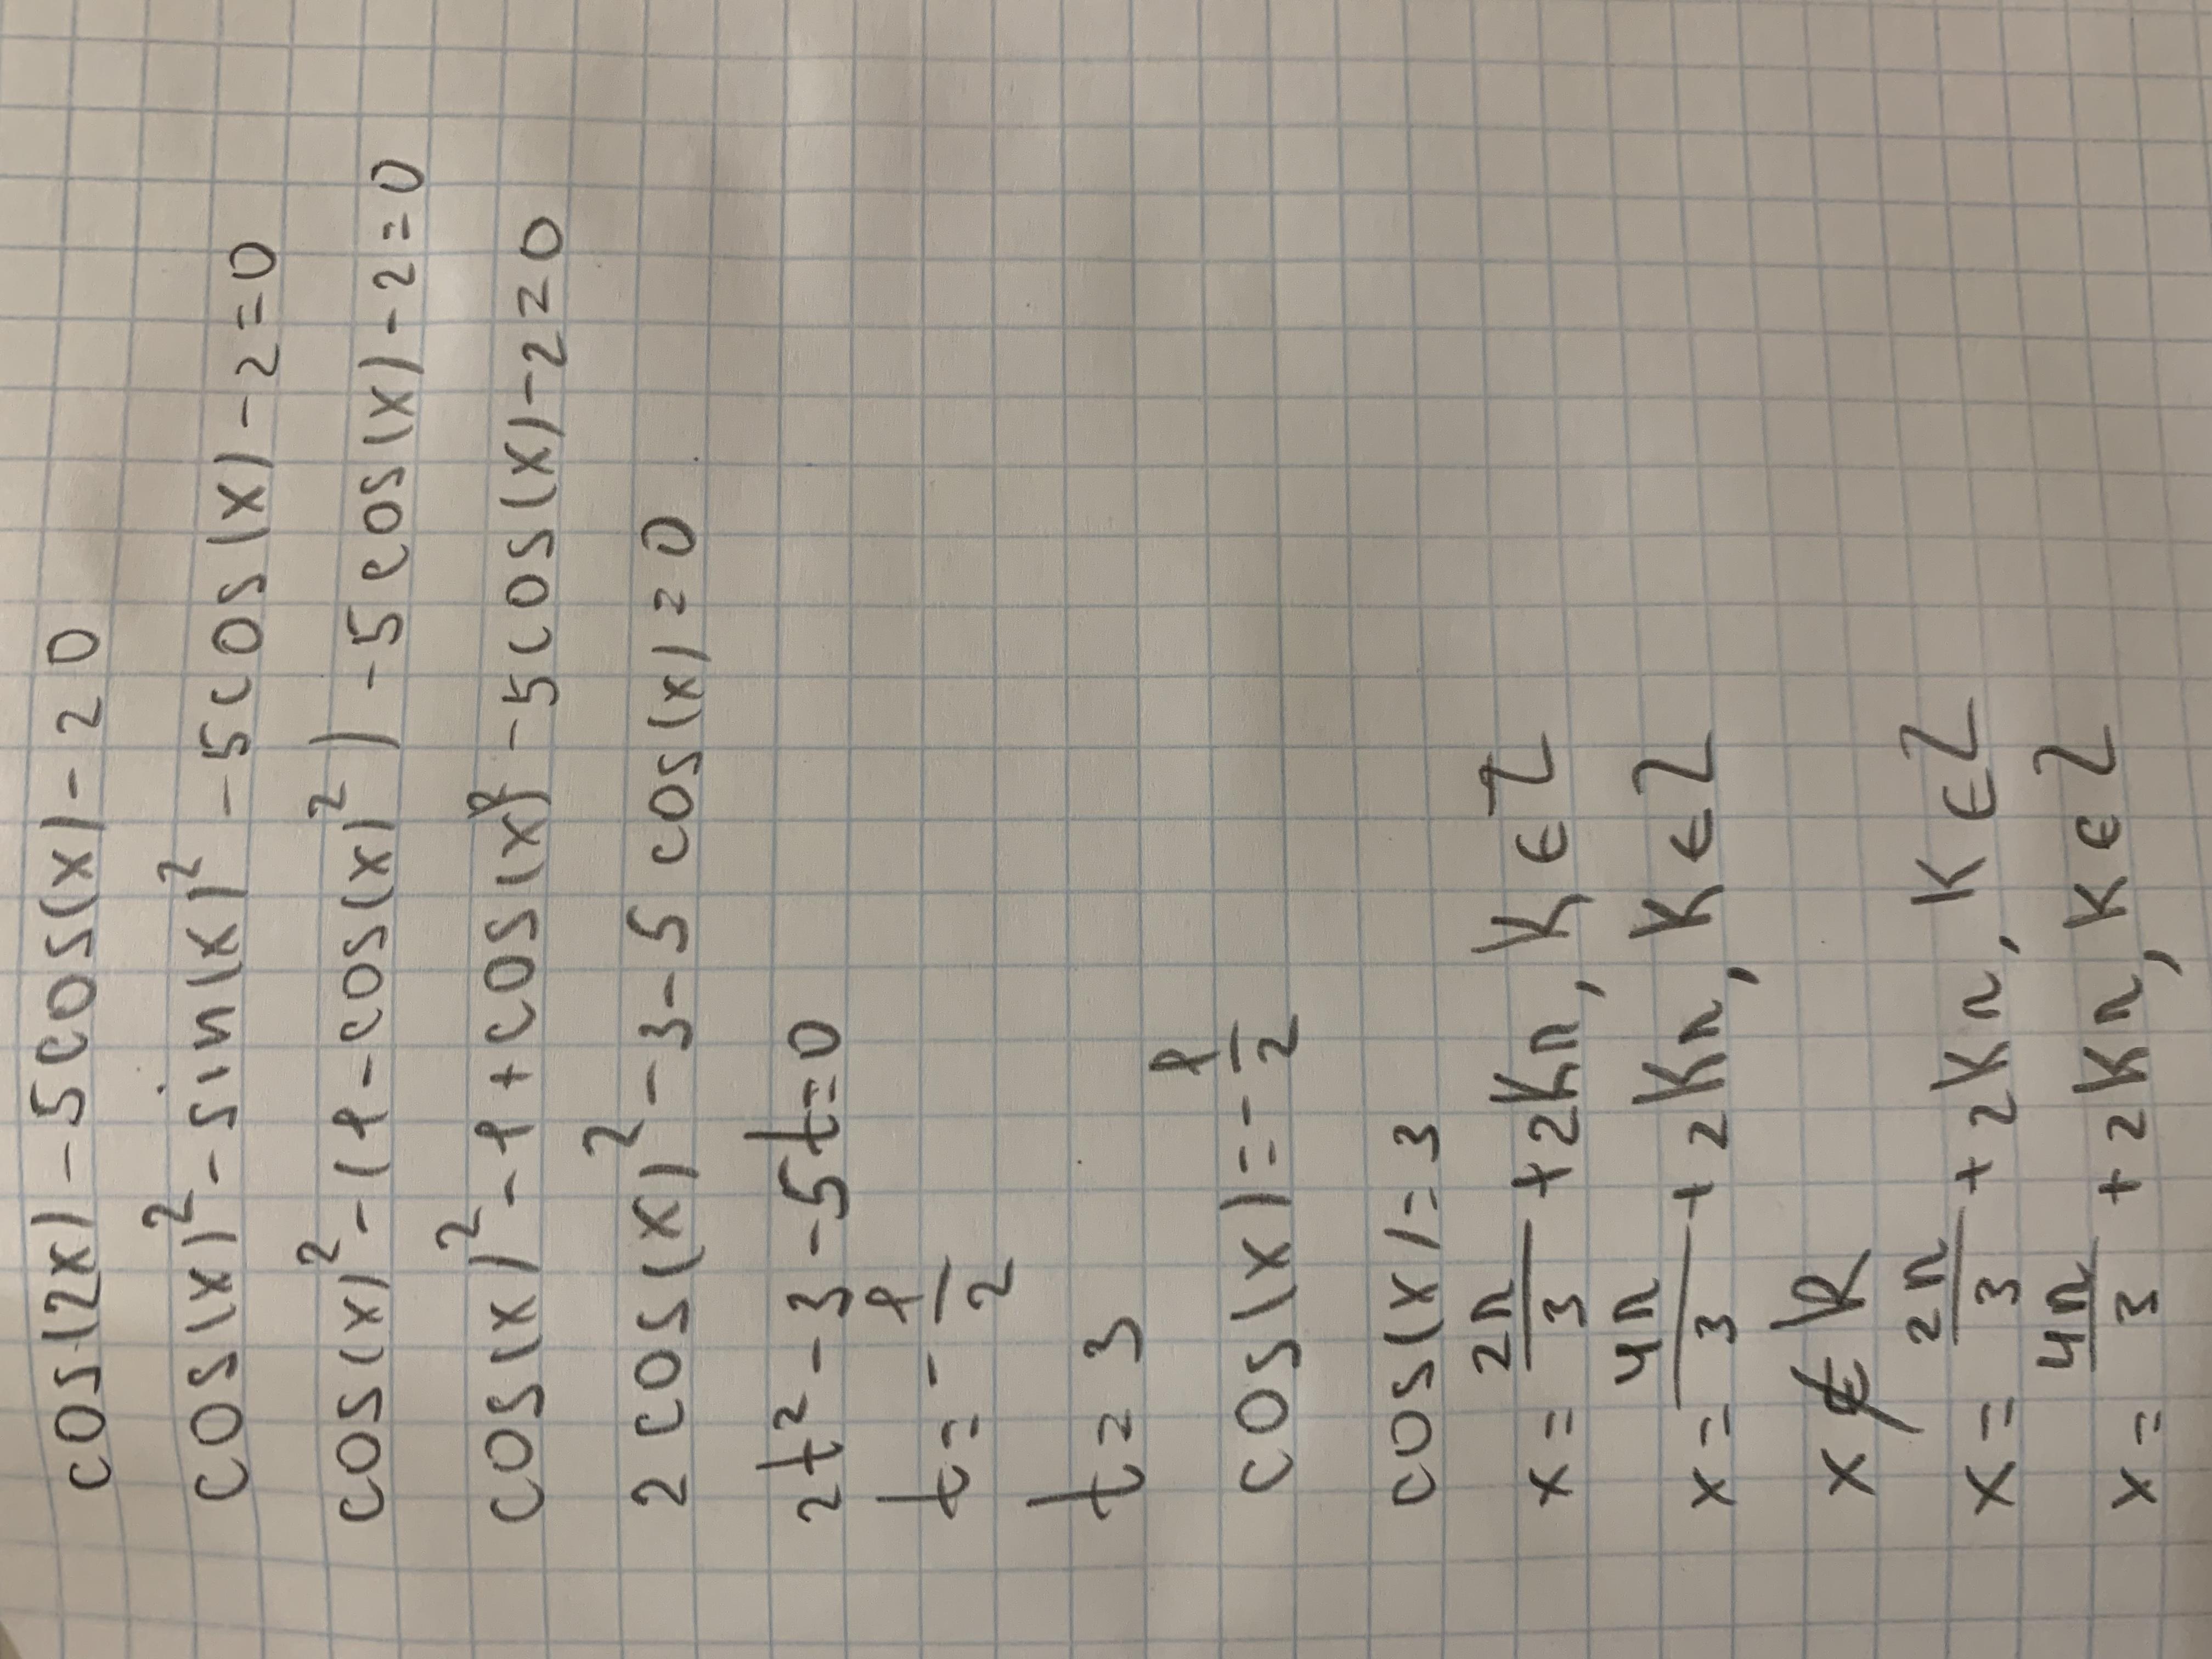 cos(2x)-5cos(x)-20
cos(x)²-sin(x)²-5cos(x)-2=0
cos(x)²-(1-cos(x)²)-5cos(x)-2=0
cos(x)²-1+cos(x)²-5cos(x)-2=0
2cos(x)²-3-5cos(x)=0
2t²-3-5t=0
t=-1/2
t=3
cos(x)=-1/2
cos(x)=3
x=2π/3+2kπ, k∈Z
x=4π/3+2kπ, k∈Z
x∉R
x=2π/3+2kπ, k∈Z
x=4π/3+2kπ, k∈Z